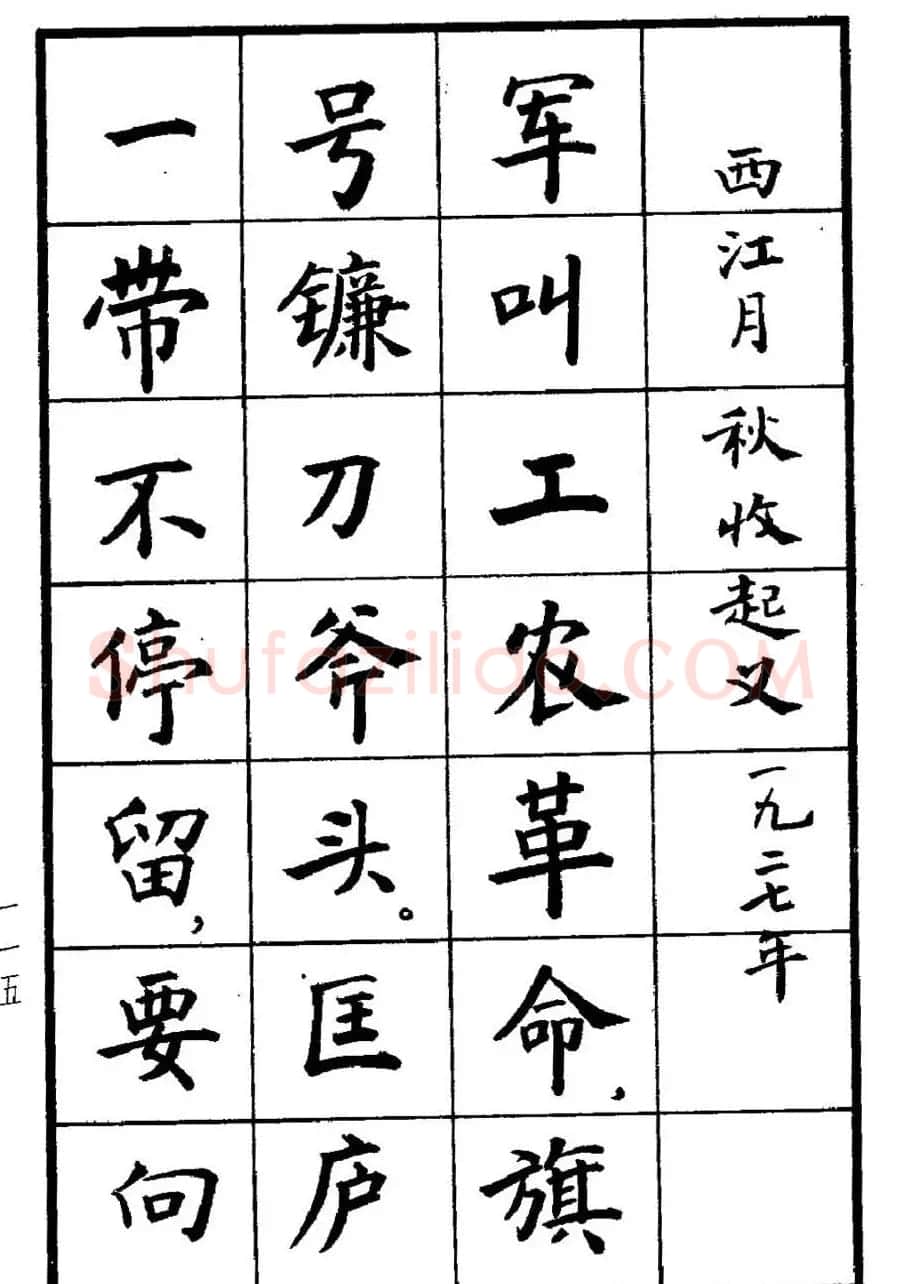 西江月 秋收起义 一九二七年
军叫工农革命，旗
号镰刀斧头。匡庐
一带不停留，要向
一一五
Shufaziliao.COM